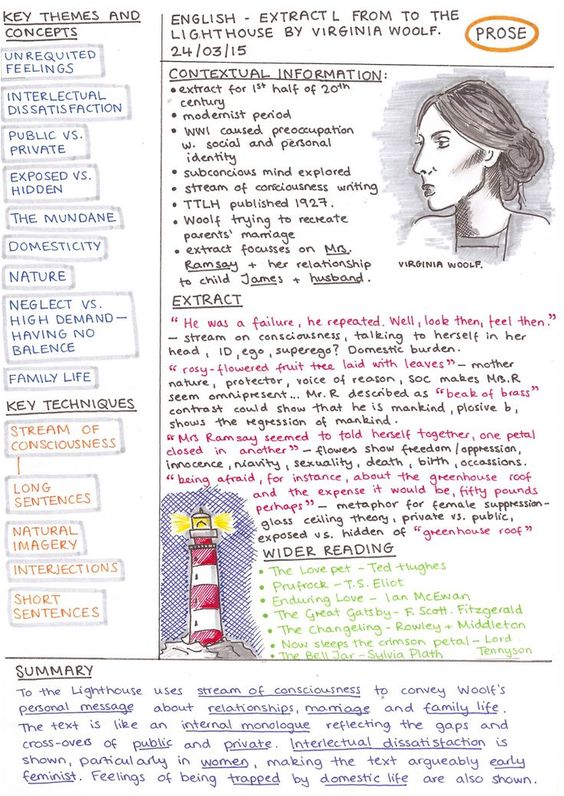 KEY THEMES AND
CONCEPTS
UNREQUITED
FEELINGS
INTERLECTUAL
DISSATISFACTION
PUBLIC VS.
PRIVATE
EXPOSED VS.
HIDDEN
THE MUNDANE
DOMESTICITY
NATURE
NEGLECT VS.
HIGH DEMAND —
HAVING NO
BALENCE
FAMILY LIFE
KEY TECHNIQUES
STREAM OF
CONSCIOUSNESS
LONG
SENTENCES
NATURAL
IMAGERY
INTERJECTIONS
SHORT
SENTENCES
ENGLISH - EXTRACT L FROM TO THE
LIGHTHOUSE BY VIRGINIA WOOLF.
24/03/15
PROSE
CONTEXTUAL INFORMATION:
• extract for 1st half of 20th
century
• modernist period
• WWI caused preoccupation
w. social and personal
identity
• subconcious mind explored
• stream of conciousness writing
• TTLH published 1927.
• Woolf trying to recreate
parents' marriage
• extract focusses on Mrs.
Ramsay + her relationship
to child James + husband.
VIRGINIA WOOLF.
EXTRACT
"He was a failure, he repeated. Well, look then, feel then."
— stream on consciousness, talking to herself in her
head, ID, ego, superego? Domestic burden.
"rosy-flowered fruit tree laid with leaves" — mother
nature, protector, voice of reason, SOC makes Mrs.R
seem omnipresent... Mr.R described as "beak of brass"
contrast could show that he is mankind, plosive b,
shows the regression of mankind.
"Mrs Ramsay seemed to told herself together, one petal
closed in another" — flowers show freedom/oppression,
innocence, niavity, sexuality, death, birth, occassions.
"being afraid, for instance, about the greenhouse roof
and the expense it would be, fifty pounds
perhaps" — metaphor for female suppression-
glass ceiling theory, private vs. public,
exposed vs. hidden of "greenhouse roof"
WIDER READING
• The Lovepet - Ted Hughes
• Prufrock - T.S. Eliot
• Enduring Love - Ian McEwan
• The Great Gatsby - F. Scott. Fitzgerald
• The Changeling - Rowley + Middleton
• Now sleeps the crimson petal - Lord
Tennyson
• The Bell Jar - Sylvia Plath
SUMMARY
To the Lighthouse uses stream of consciousness to convey Woolf's
personal message about relationships, marriage and family life.
The text is like an internal monologue reflecting the gaps and
cross-overs of public and private. Interlectual dissatisfaction is
shown, particularly in women, making the text argueably early
feminist. Feelings of being trapped by domestic life are also shown.